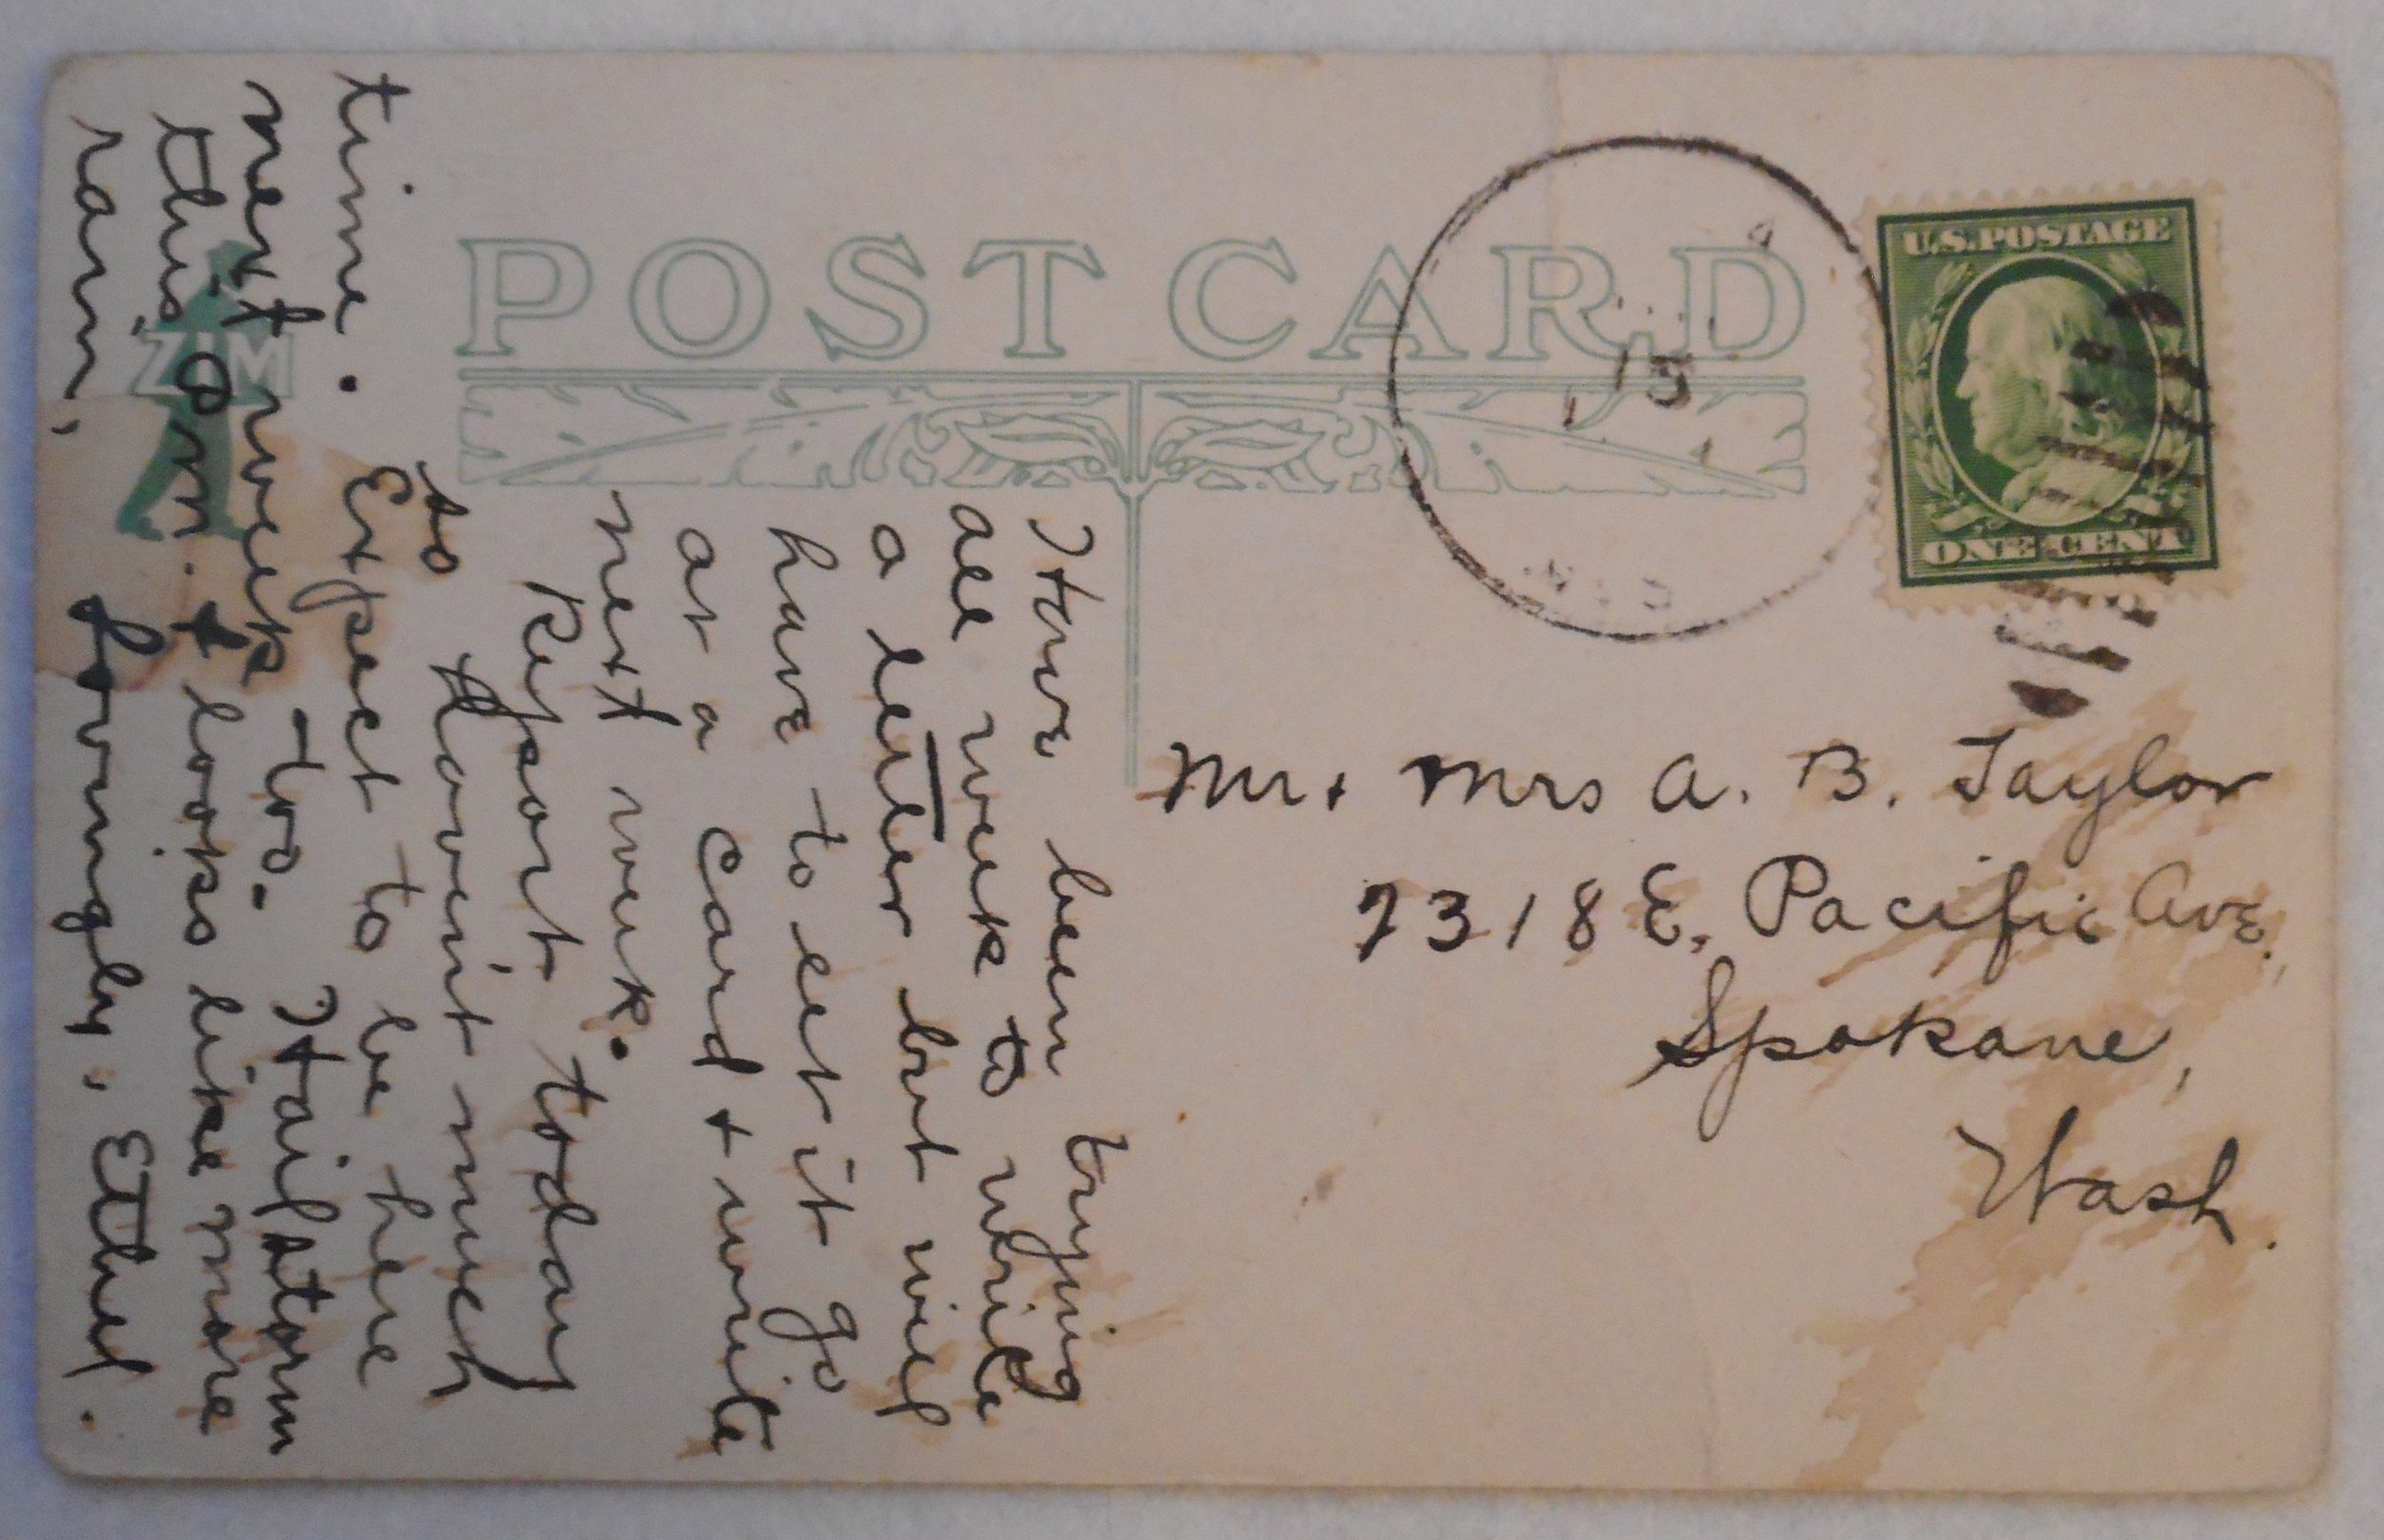 POST CARD
U.S. POSTAGE
ONE CENT
15
ZIM
Mr + Mrs A. B. Taylor
2318 E. Pacific Ave.,
Spokane,
Wash.
Have been trying
all week to write
a letter but will
have to let it go
at a card + write
next week.
Report today
to
Havent much
time. Expect to be here
next week too. Hailstorm
this P.m. + looks like more
rain, Lovingly, Ethel.